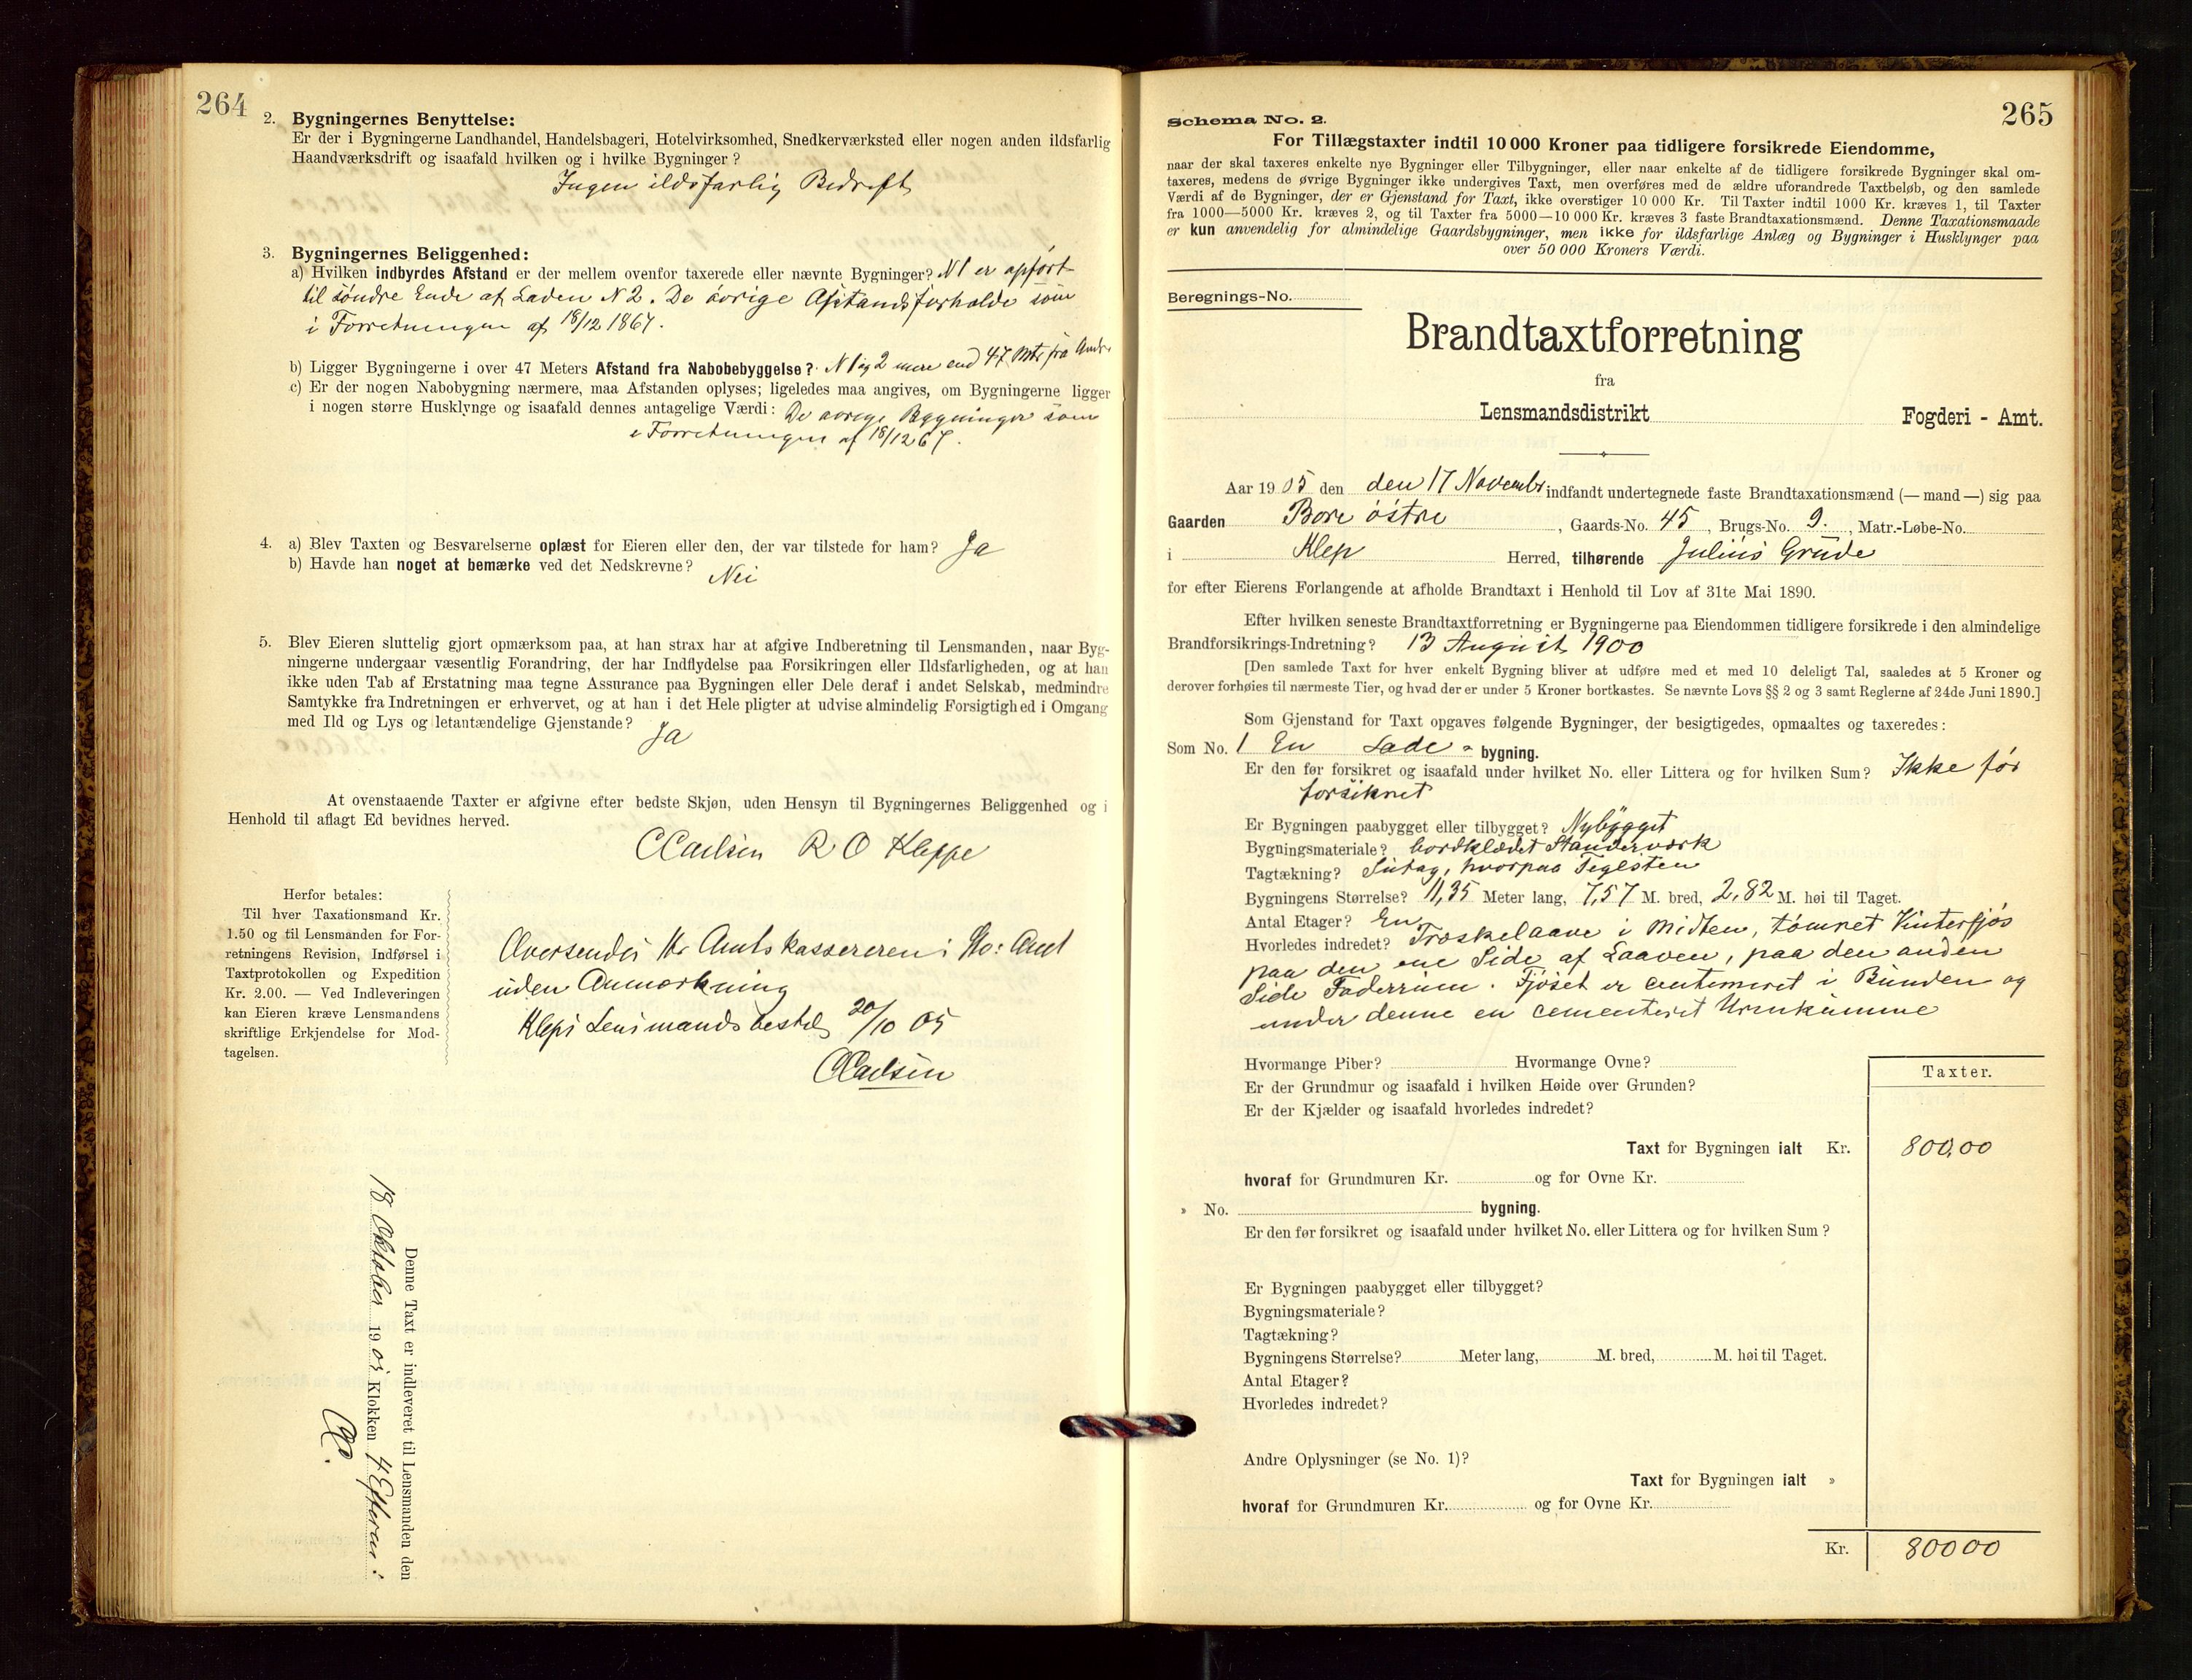 264
2. Bygningernes Benyttelse:
Er der i Bygningerne Landhandel, Handelsbageri, Hotelvirksomhed, Snedkerværksted eller nogen anden ildsfarlig
Haandværksdrift og isaafald hvilken og i hvilke Bygninger?
Ingen ildsfarlig Bedrift
3. Bygningernes Beliggenhed:
a) Hvilken indbyrdes Afstand er der mellem ovenfor taxerede eller nævnte Bygninger? N 1 er opført
til søndre Ende af Laden N 2. De øvrige Afstandsforholde som
i Forretningen af 18/12 1867.
b) Ligger Bygningerne i over 47 Meters Afstand fra Nabobebyggelse? N 1 og 2 mere end 47 Mtr fra Andre
c) Er der nogen Nabobygning nærmere, maa Afstanden oplyses; ligeledes maa angives, om Bygningerne ligger
i nogen større Husklynge og isaafald dennes antagelige Værdi: De øvrige Bygninger som
i Forretningen af 18/12 67.
4. a) Blev Taxten og Besvarelserne oplæst for Eieren eller den, der var tilstede for ham? Ja
b) Havde han noget at bemærke ved det Nedskrevne? Nei
5. Blev Eieren sluttelig gjort opmærksom paa, at han strax har at afgive Indberetning til Lensmanden, naar Byg-
ningerne undergaar væsentlig Forandring, der har Indflydelse paa Forsikringen eller Ildsfarligheden, og at han
ikke uden Tab af Erstatning maa tegne Assurance paa Bygningen eller Dele deraf i andet Selskab, medmindre
Samtykke fra Indretningen er erhvervet, og at han i det Hele pligter at udvise almindelig Forsigtighed i Omgang
med Ild og Lys og letantændelige Gjenstande? Ja
At ovenstaaende Taxter er afgivne efter bedste Skjøn, uden Hensyn til Bygningernes Beliggenhed og i
Henhold til aflagt Ed bevidnes herved.
C Carlsen R O Kleppe
Herfor betales:
Til hver Taxationsmand Kr.
1.50 og til Lensmanden for For-
retningens Revision, Indførsel i
Taxtprotokollen og Expedition
Kr. 2.00. — Ved Indleveringen
kan Eieren kræve Lensmandens
skriftlige Erkjendelse for Mod-
tagelsen.
Oversendes Hr Amtskassereren i Sto: Amt
uden Anmærkning
Kleps Lensmandsbestil 20/10 05
C Carlsen
Denne Taxt er indleveret til Lensmanden den
18 Oktober 1905 Klokken 4 Efterm:
CC.
265
Schema No. 2.
For Tillægstaxter indtil 10 000 Kroner paa tidligere forsikrede Eiendomme,
naar der skal taxeres enkelte nye Bygninger eller Tilbygninger, eller naar enkelte af de tidligere forsikrede Bygninger skal om-
taxeres, medens de øvrige Bygninger ikke undergives Taxt, men overføres med de ældre uforandrede Taxtbeløb, og den samlede
Værdi af de Bygninger, der er Gjenstand for Taxt, ikke overstiger 10 000 Kr. Til Taxter indtil 1000 Kr. kræves 1, til Taxter
fra 1000—5000 Kr. kræves 2, og til Taxter fra 5000—10 000 Kr. kræves 3 faste Brandtaxationsmænd. Denne Taxationsmaade
er kun anvendelig for almindelige Gaardsbygninger, men ikke for ildsfarlige Anlæg og Bygninger i Husklynger paa
over 50 000 Kroners Værdi.
Beregnings-No.
Brandtaxtforretning
fra
Lensmandsdistrikt Fogderi - Amt.
Aar 1905 den den 17 Novembr indfandt undertegnede faste Brandtaxationsmænd (— mand —) sig paa
Gaarden Bore østre, Gaards-No. 45, Brugs-No. 9., Matr.-Løbe-No.
i Klep Herred, tilhørende Julius Grude
for efter Eierens Forlangende at afholde Brandtaxt i Henhold til Lov af 31te Mai 1890.
Efter hvilken seneste Brandtaxtforretning er Bygningerne paa Eiendommen tidligere forsikrede i den almindelige
Brandforsikrings-Indretning? 13 August 1900
[Den samlede Taxt for hver enkelt Bygning bliver at udføre med et med 10 deleligt Tal, saaledes at 5 Kroner og
derover forhøies til nærmeste Tier, og hvad der er under 5 Kroner bortkastes. Se nævnte Lovs §§ 2 og 3 samt Reglerne af 24de Juni 1890.]
Som Gjenstand for Taxt opgaves følgende Bygninger, der besigtigedes, opmaaltes og taxeredes:
Som No. 1 En Lade - bygning.
Er den før forsikret og isaafald under hvilket No. eller Littera og for hvilken Sum? Ikke før
forsikret
Er Bygningen paabygget eller tilbygget? Nybygget
Bygningsmateriale? bordklædet Standerværk
Tagtækning? Sutag, hvorpaa Teglsten
Bygningens Størrelse? 11,35 Meter lang, 7,57 M. bred, 2,82 M. høi til Taget.
Antal Etager? En
Hvorledes indredet? Træskelaave i Midten, tømret Vinterfjøs
paa den ene Side af Laaven, paa den anden
Side Foderrum. Fjøset er cementeret i Bunden og
under denne en cementeret Urinkumme
Hvormange Piber? Hvormange Ovne?
Er der Grundmur og isaafald i hvilken Høide over Grunden?
Er der Kjælder og isaafald hvorledes indredet?
Taxter.
Taxt for Bygningen ialt Kr. 800,00
hvoraf for Grundmuren Kr. og for Ovne Kr.
» No. bygning.
Er den før forsikret og isaafald under hvilket No. eller Littera og for hvilken Sum?
Er Bygningen paabygget eller tilbygget?
Bygningsmateriale?
Tagtækning?
Bygningens Størrelse? Meter lang, M. bred, M. høi til Taget.
Antal Etager?
Hvorledes indredet?
Andre Oplysninger (se No. 1)?
Taxt for Bygningen ialt »
hvoraf for Grundmuren Kr. og for Ovne Kr.
Kr. 800 00